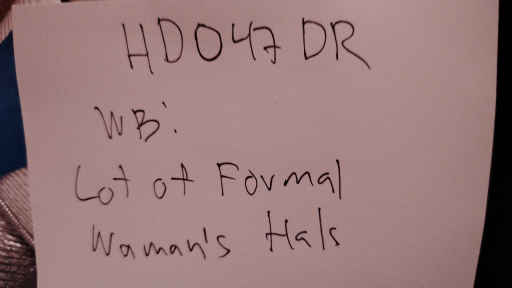 HD047DR
WB:
Lot of Formal
Waman's Hats